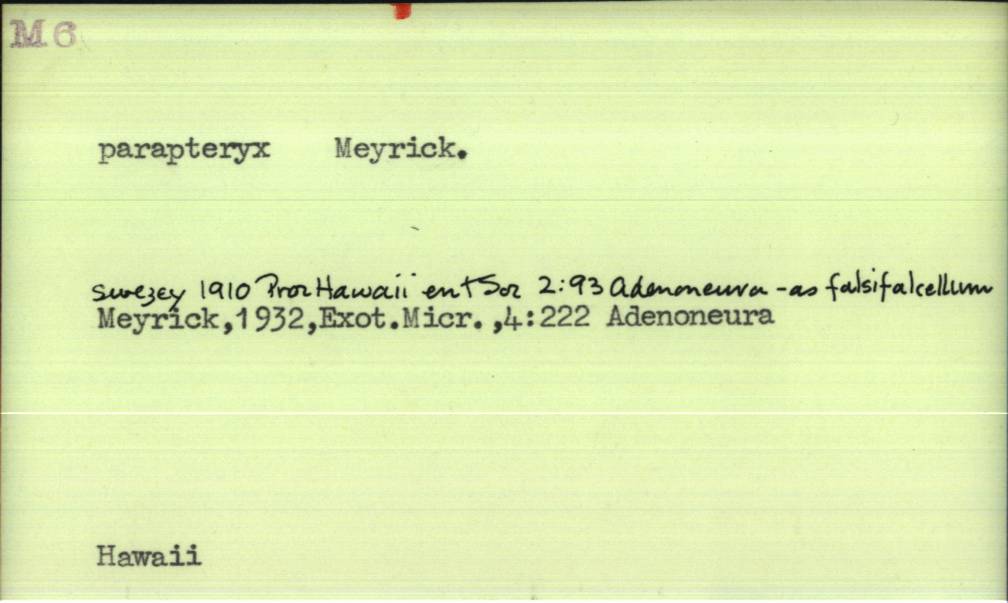 M 6
parapteryx Meyrick.
swezey 1910 Proc Hawaii ent Soc 2:93 Adenoneura - as falsifalcellum
Meyrick,1932,Exot.Micr.,4:222 Adenoneura
Hawaii